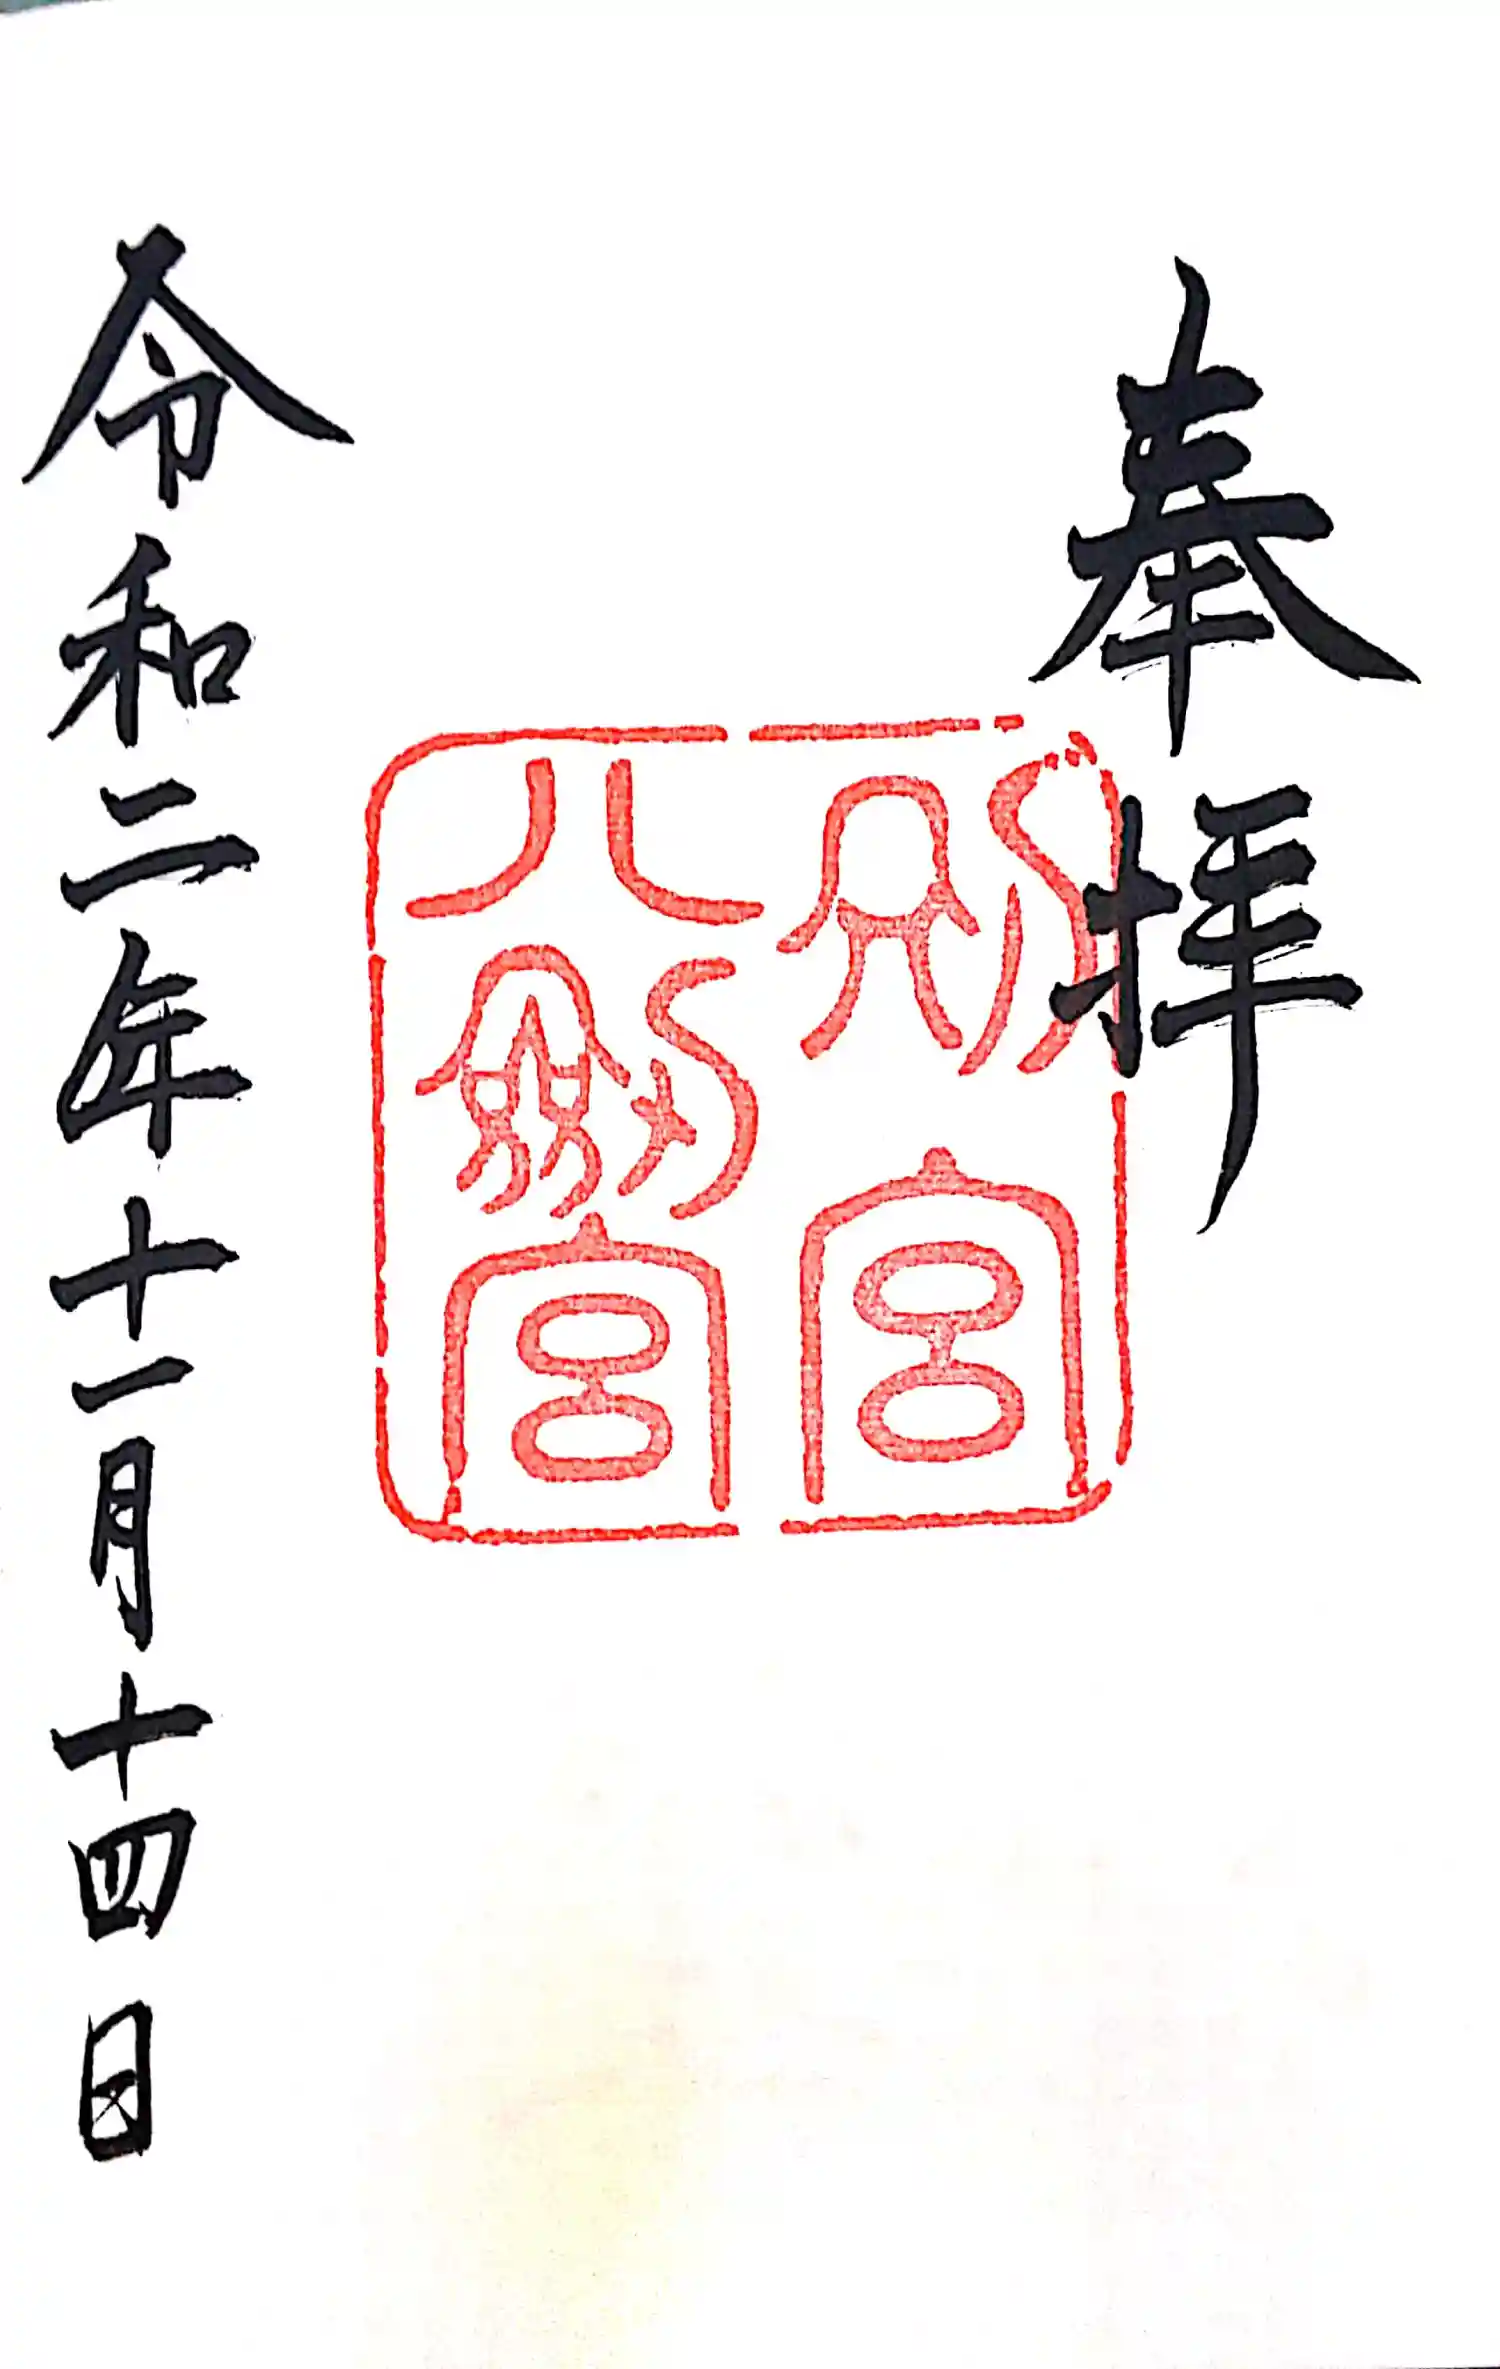 奉拝
別宮
八劔宮
令和二年十一月十四日